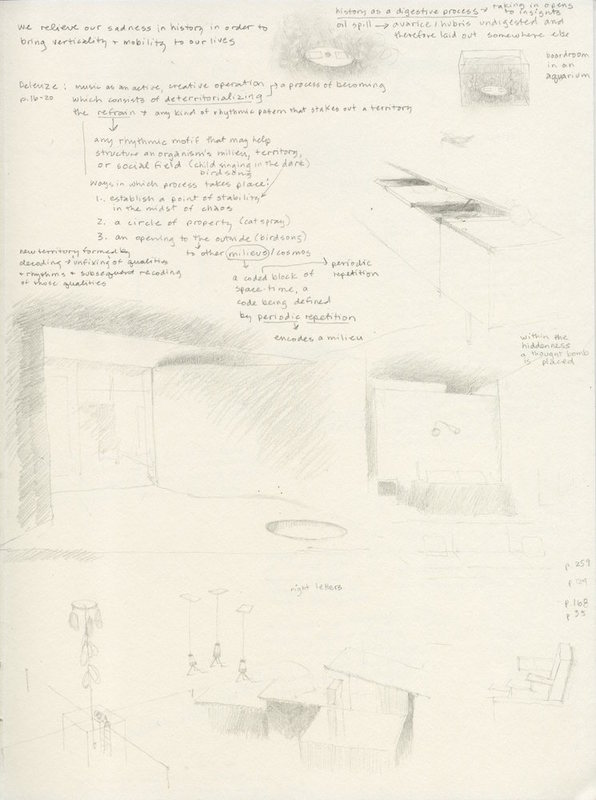 we relieve our sadness in history in order to
bring verticality + mobility to our lives
history as a digestive process → taking in opens
to insights
oil spill → avarice/hubris undigested and
therefore laid out somewhere else
boardroom
in an
aquarium
Deleuze: music as an active, creative operation → a process of becoming
p.16-20 which consists of deterritorializing
the refrain → any kind of rhythmic pattern that stakes out a territory
any rhythmic motif that may help
structure an organism's milieu, territory,
or social field (child singing in the dark)
birdsong
ways in which process takes place:
1. establish a point of stability
in the midst of chaos
2. a circle of property (cat spray)
3. an opening to the outside (birdsong)
to other milieus/cosmos
new territory formed by
decoding + unfixing of qualities
+ rhythms + subsequent recoding
of those qualities
periodic
repetition
a coded block of
space-time, a
code being defined
by periodic repetition
encodes a milieu
within the
hiddenness
a thought bomb
is placed
p. 259
p. 129
p. 168
p 35
night letters